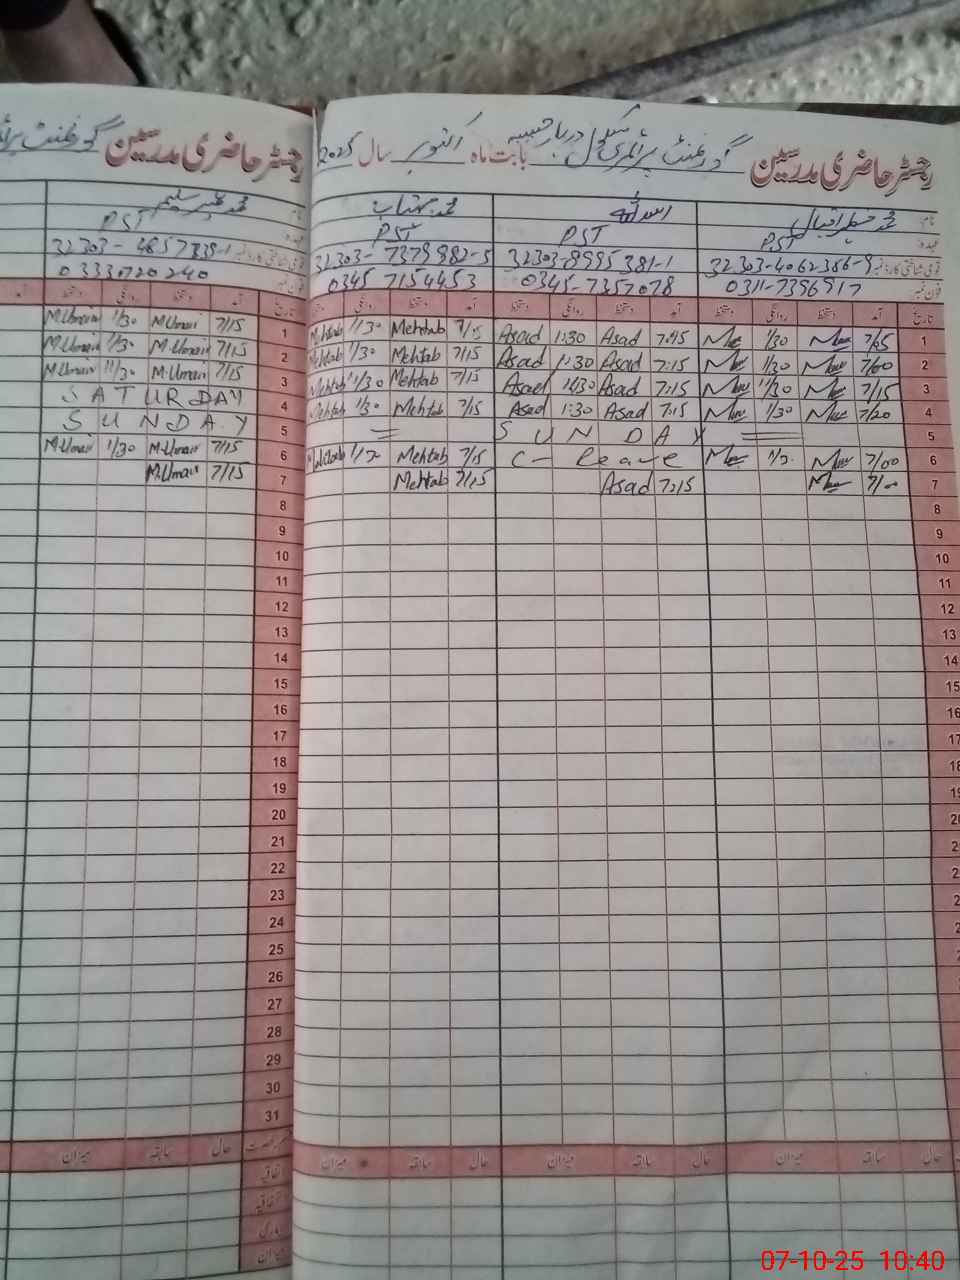 رجسٹر حاضری مدرسین گورنمنٹ پرائمری سکول دربار حبیبیہ بابت ماہ اکتوبر سال 2025
نام محمد اقبال
عہدہ PST
قومی شناختی کارڈ نمبر 32303-4062386-9
فون نمبر 0311-7396917
اسداللہ
PST
32303-8995381-1
0345-7357078
محمد مہتاب
PST
32303-7379882-5
0345 7154453
تاریخ آمد دستخط روانگی دستخط آمد دستخط روانگی دستخط آمد دستخط روانگی دستخط
1 7/05 1/30 7:15 Asad 1:30 Asad 7/15 Mehtab 1/30 Mehtab
2 7/00 1/30 7:15 Asad 1:30 Asad 7/15 Mehtab 1/30 Mehtab
3 7/15 11/30 7:15 Asad 11:30 Asad 7/15 Mehtab 11/30 Mehtab
4 7/20 1/30 7:15 Asad 1:30 Asad 7/15 Mehtab 1/30 Mehtab
5 SUNDAY
6 7/00 C-leave 7/15 Mehtab Mehtab
7 7/00 7:15 Asad 7/15 Mehtab
8
9
10
11
12
13
14
15
16
17
18
حال سابقہ میزان حال سابقہ میزان حال سابقہ میزان
رجسٹر حاضری مدرسین گورنمنٹ
نام محمد عمیر سلیم
عہدہ PST
قومی شناختی کارڈ نمبر
فون نمبر 03330720240
تاریخ آمد دستخط روانگی دستخط آمد
1 7/15 M.Umair 1/30 M.Umair
2 7/15 M.Umair 1/30 M.Umair
3 7/15 M.Umair 11/30 M.Umair
4 SATURDAY
5 SUNDAY
6 7/15 M.Umair 1/30 M.Umair
7 7/15 M.Umair
8
9
10
11
12
13
14
15
16
17
18
19
20
21
22
23
24
25
26
27
28
29
30
31
حال سابقہ میزان
اتفاقیہ
میزان
07-10-25 10:40